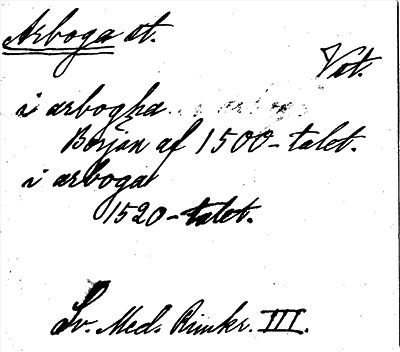 Arboga st.
Vst.
i arbogha
Början af 1500-talet.
i arboga
1520-talet.
Sv. Med. Rimkr. III.